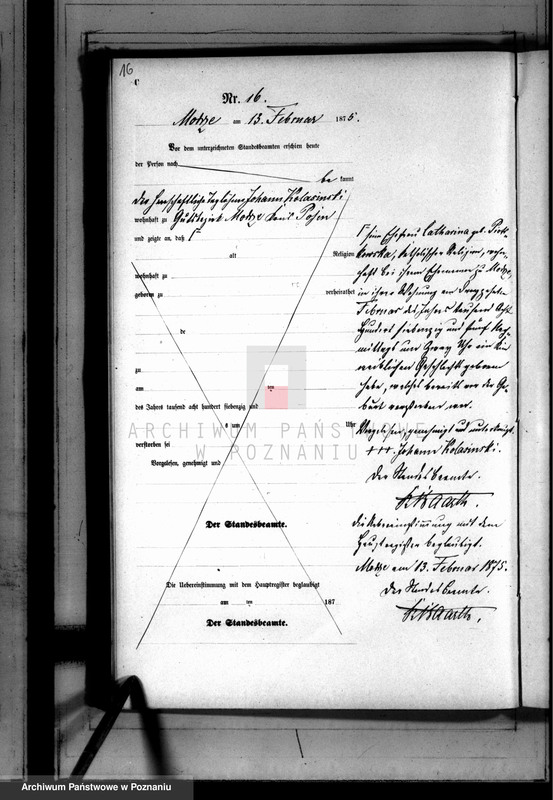 16
C
Nr. 16.
Motze am 13. Februar 1875.
Vor dem unterzeichneten Standesbeamten erschien heute
der Person nach
be kannt
der herrschaftliche Tagelöhner Johann Kolasinski
wohnhaft zu Gutsbezirk Motze Kreis Posen
und zeigte an, daß
alt Religion,
wohnhaft zu
geboren zu verheirathet
de
zu
am ten
des Jahres tausend acht hundert siebenzig und
s um Uhr
verstorben sei
Vorgelesen, genehmigt und
Der Standesbeamte.
Die Uebereinstimmung mit dem Hauptregister beglaubigt
am ten 187
Der Standesbeamte.
seine Ehefrau Catharina geb. Piot-
kowska, katholischer Religion, wohn-
haft bei ihrem Ehemanne zu Motze,
in ihrer Wohnung am dreizehnten
Februar des Jahres tausend Acht
hundert siebenzig und fünf Nach-
mittags um Zwey Uhr ein Kind
weiblichen Geschlechts geboren
habe, welches bereits vor der Ge-
burt verstorben war.
Vorgelesen, genehmigt und unterkreuzt
+++ Johann Kolasinski.
Der Standesbeamte.
die Uebereinstimmung mit dem
Hauptregister beglaubigt.
Motze am 13. Februar 1875.
Der Standesbeamte.
ARCHIWUM PAŃSTWOWE
W POZNANIU
Archiwum Państwowe w Poznaniu